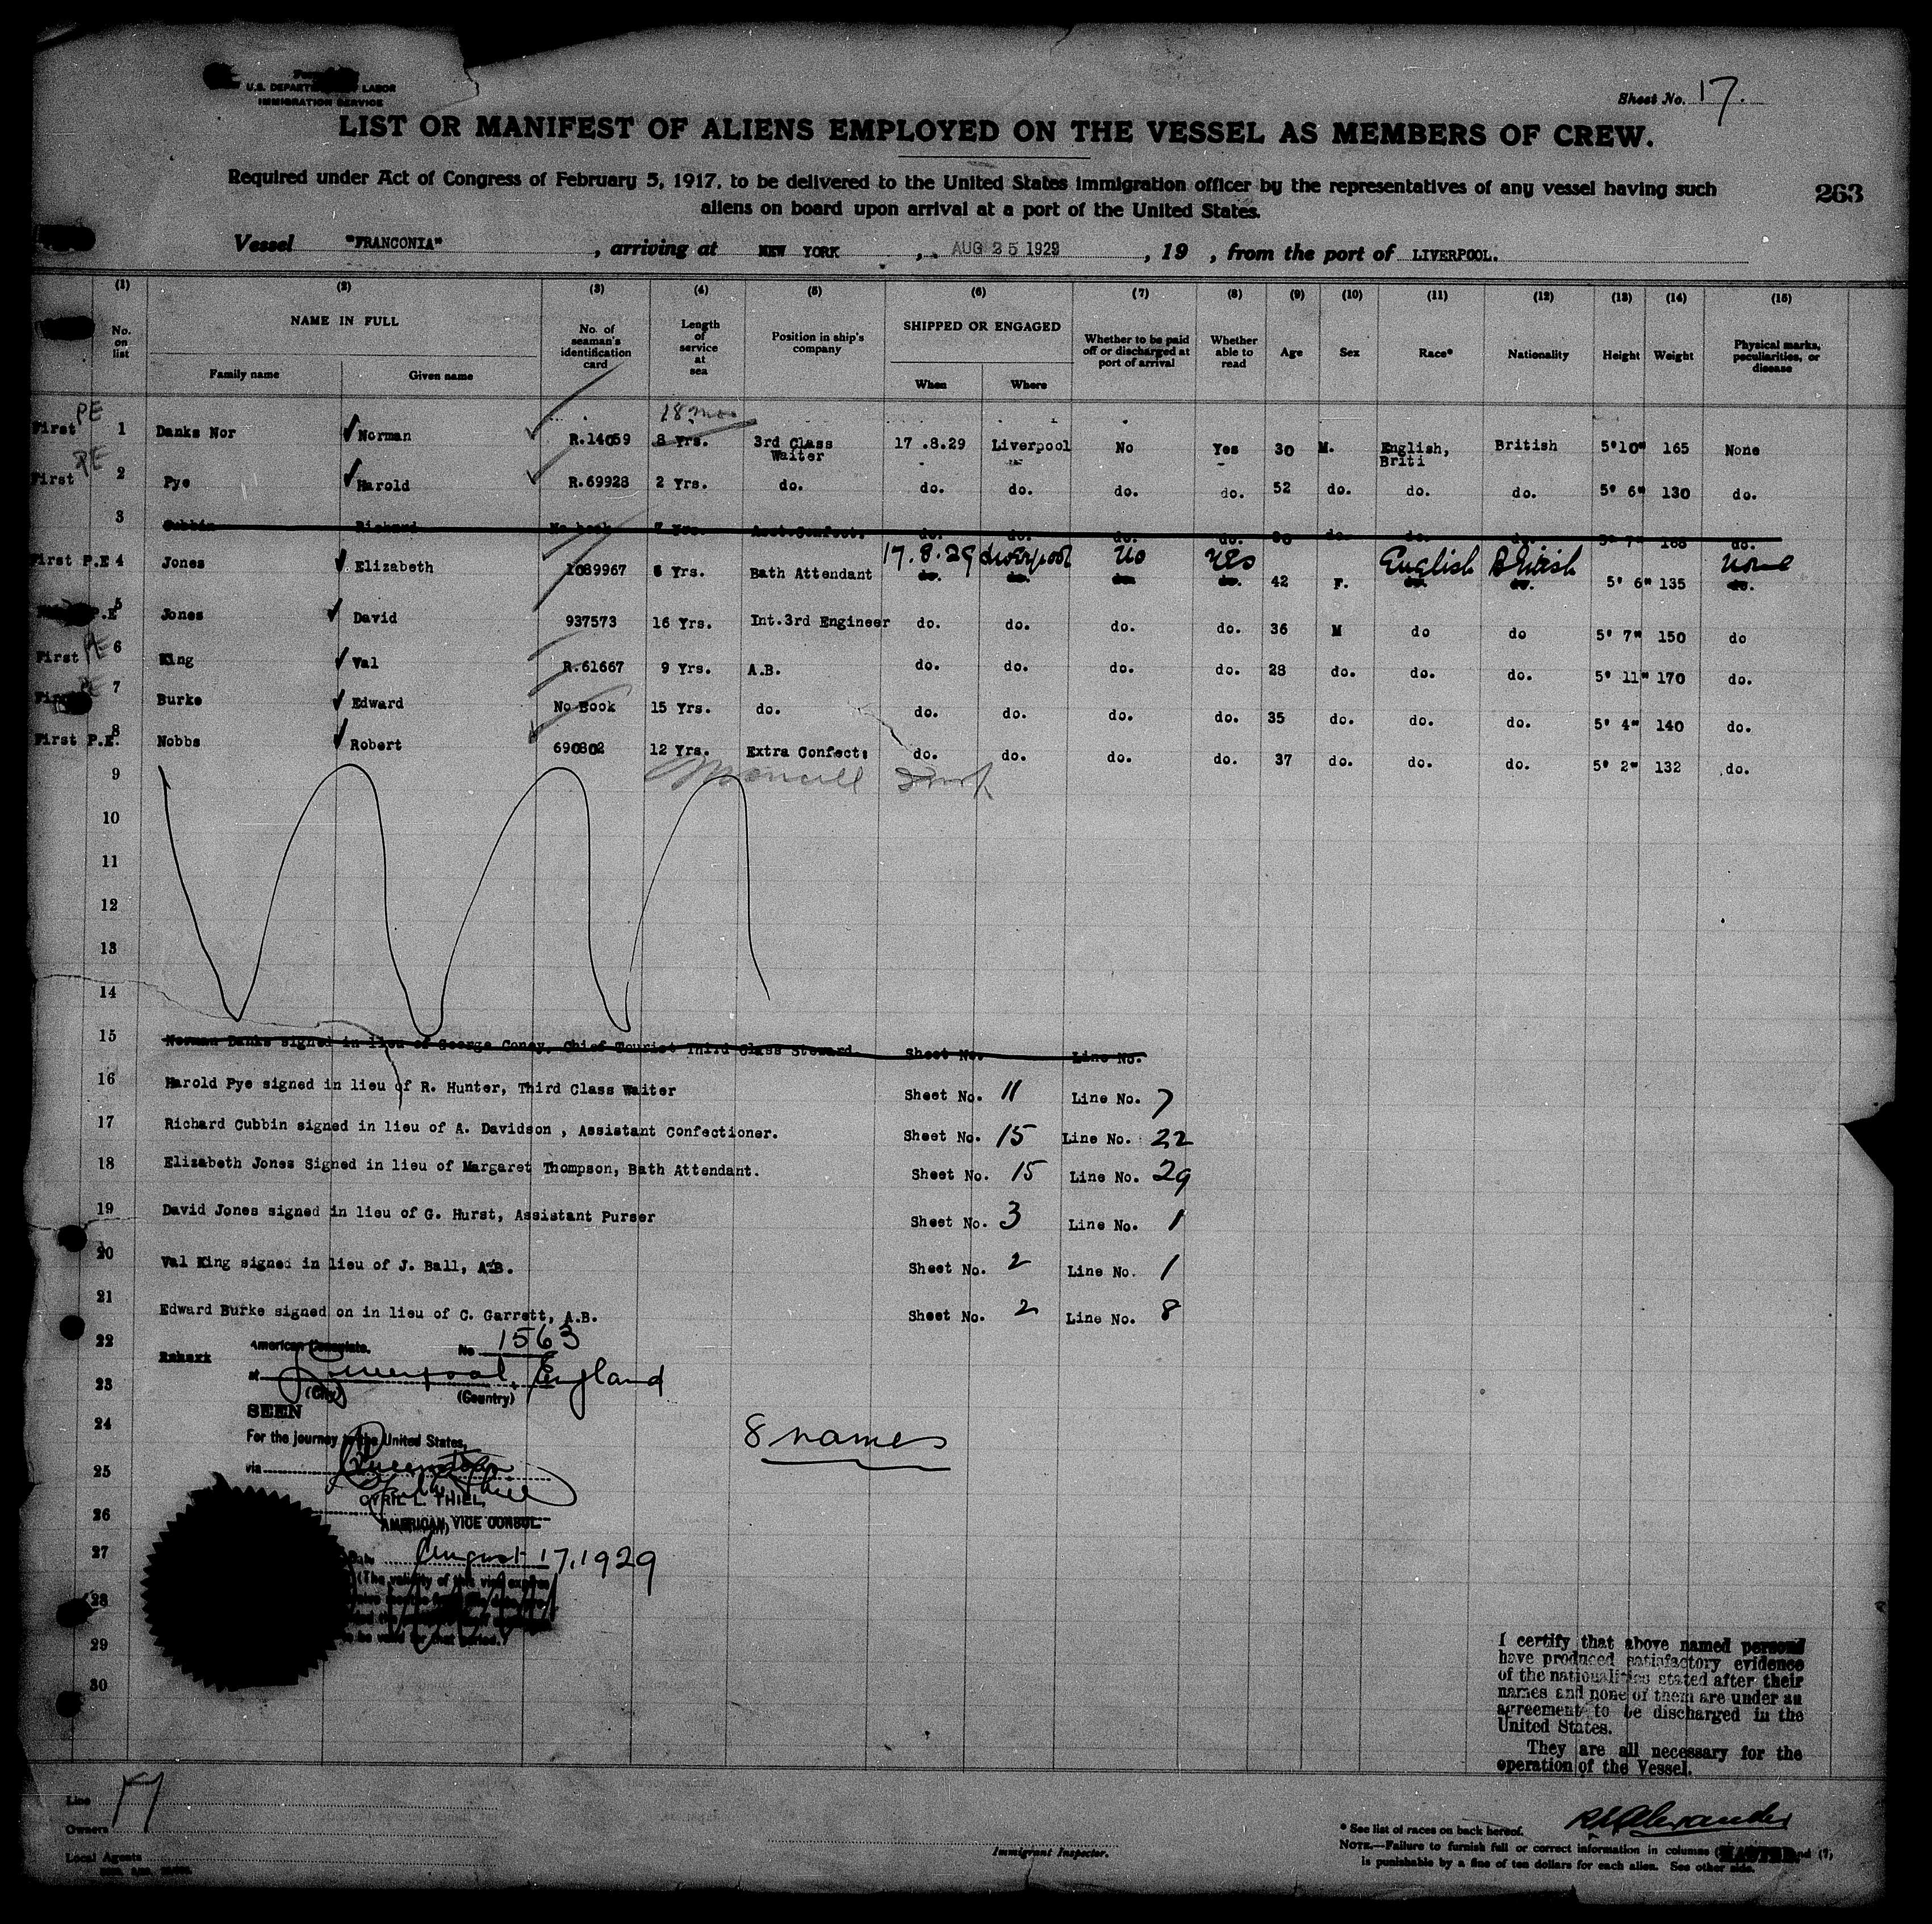 U.S. DEPARTMENT OF LABOR
IMMIGRATION SERVICE
Sheet No. 17.
LIST OR MANIFEST OF ALIENS EMPLOYED ON THE VESSEL AS MEMBERS OF CREW.
Required under Act of Congress of February 5, 1917, to be delivered to the United States immigration officer by the representatives of any vessel having such
aliens on board upon arrival at a port of the United States.
263
Vessel "FRANCONIA", arriving at NEW YORK, AUG 25 1929, 19 , from the port of LIVERPOOL.
(1) (2) (3) (4) (5) (6) (7) (8) (9) (10) (11) (12) (13) (14) (15)
No. on list NAME IN FULL Family name Given name No. of seaman's identification card Length of service at sea Position in ship's company SHIPPED OR ENGAGED When Where Whether to be paid off or discharged at port of arrival Whether able to read Age Sex Race* Nationality Height Weight Physical marks, peculiarities, or disease
18 mos
First PE 1 Danks Nor Norman R.14059 8 Yrs. 3rd Class Waiter 17 .8.29 Liverpool No Yes 30 M. English, Briti British 5'10" 165 None
First PE 2 Pye Harold R.69923 2 Yrs. do. do. do. do. do. 52 do. do. do. 5' 6" 130 do.
3 Cubbin Richard No book 7 Yrs. Asst.Confect. do. do. do. do. do. do. do. 5' 7" 168 do.
17.8.29 Liverpool No Yes English British None
First P.E 4 Jones Elizabeth 1089967 6 Yrs. Bath Attendant do. do. do. do. 42 F. do. do. 5' 6" 135 do.
P.E 5 Jones David 937573 16 Yrs. Int.3rd Engineer do. do. do. do. 36 M do do 5' 7" 150 do
First PE 6 King Val R.61667 9 Yrs. A.B. do. do. do. do. 28 do. do. do. 5' 11" 170 do.
First PE 7 Burke Edward No Book 15 Yrs. do. do. do. do. do. 35 do. do. do. 5' 4" 140 do.
First P.E. 8 Nobbs Robert 690802 12 Yrs. Extra Confect: do. do. do. do. 37 do. do. do. 5' 2" 132 do.
9
10
11
12
13
14
15 Norman Danks signed in lieu of George Coney, Chief Tourist Third Class Steward. Sheet No. Line No.
16 Harold Pye signed in lieu of R. Hunter, Third Class Waiter Sheet No. 11 Line No. 7
17 Richard Cubbin signed in lieu of A. Davidson , Assistant Confectioner. Sheet No. 15 Line No. 22
18 Elizabeth Jones Signed in lieu of Margaret Thompson, Bath Attendant. Sheet No. 15 Line No. 29
19 David Jones signed in lieu of G. Hurst, Assistant Purser Sheet No. 3 Line No. 1
20 Val King signed in lieu of J. Ball, A.B. Sheet No. 2 Line No. 1
21 Edward Burke signed on in lieu of C. Garrett, A.B. Sheet No. 2 Line No. 8
22 American Consulate. No 1563
at Liverpool, England
23 (City) (Country)
SEEN
24 For the journey to the United States,
8 names
25 via Queenstown
CYRIL L. THIEL,
26 AMERICAN VICE CONSUL
27 Date August 17, 1929
(The validity of this visa expires
28
29
30
I certify that above named persons
have produced satisfactory evidence
of the nationalities stated after their
names and none of them are under an
agreement to be discharged in the
United States.
They are all necessary for the
operation of the Vessel.
Line
Owners
Local Agents
Immigrant Inspector.
* See list of races on back hereof.
R Alexander
MASTER
NOTE.—Failure to furnish full or correct information in columns and (7)
is punishable by a fine of ten dollars for each alien. See other side.